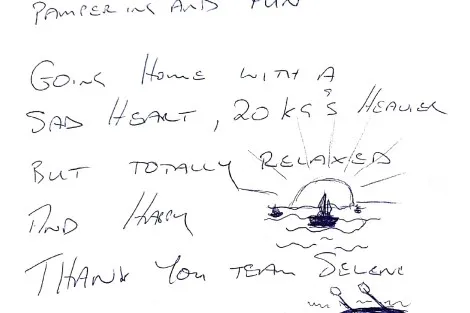 PAMPERING AND FUN
GOING HOME WITH A
SAD HEART, 20 KG'S HEAVIER
BUT TOTALLY RELAXED
AND HAPPY
THANK YOU TEAM SELENE